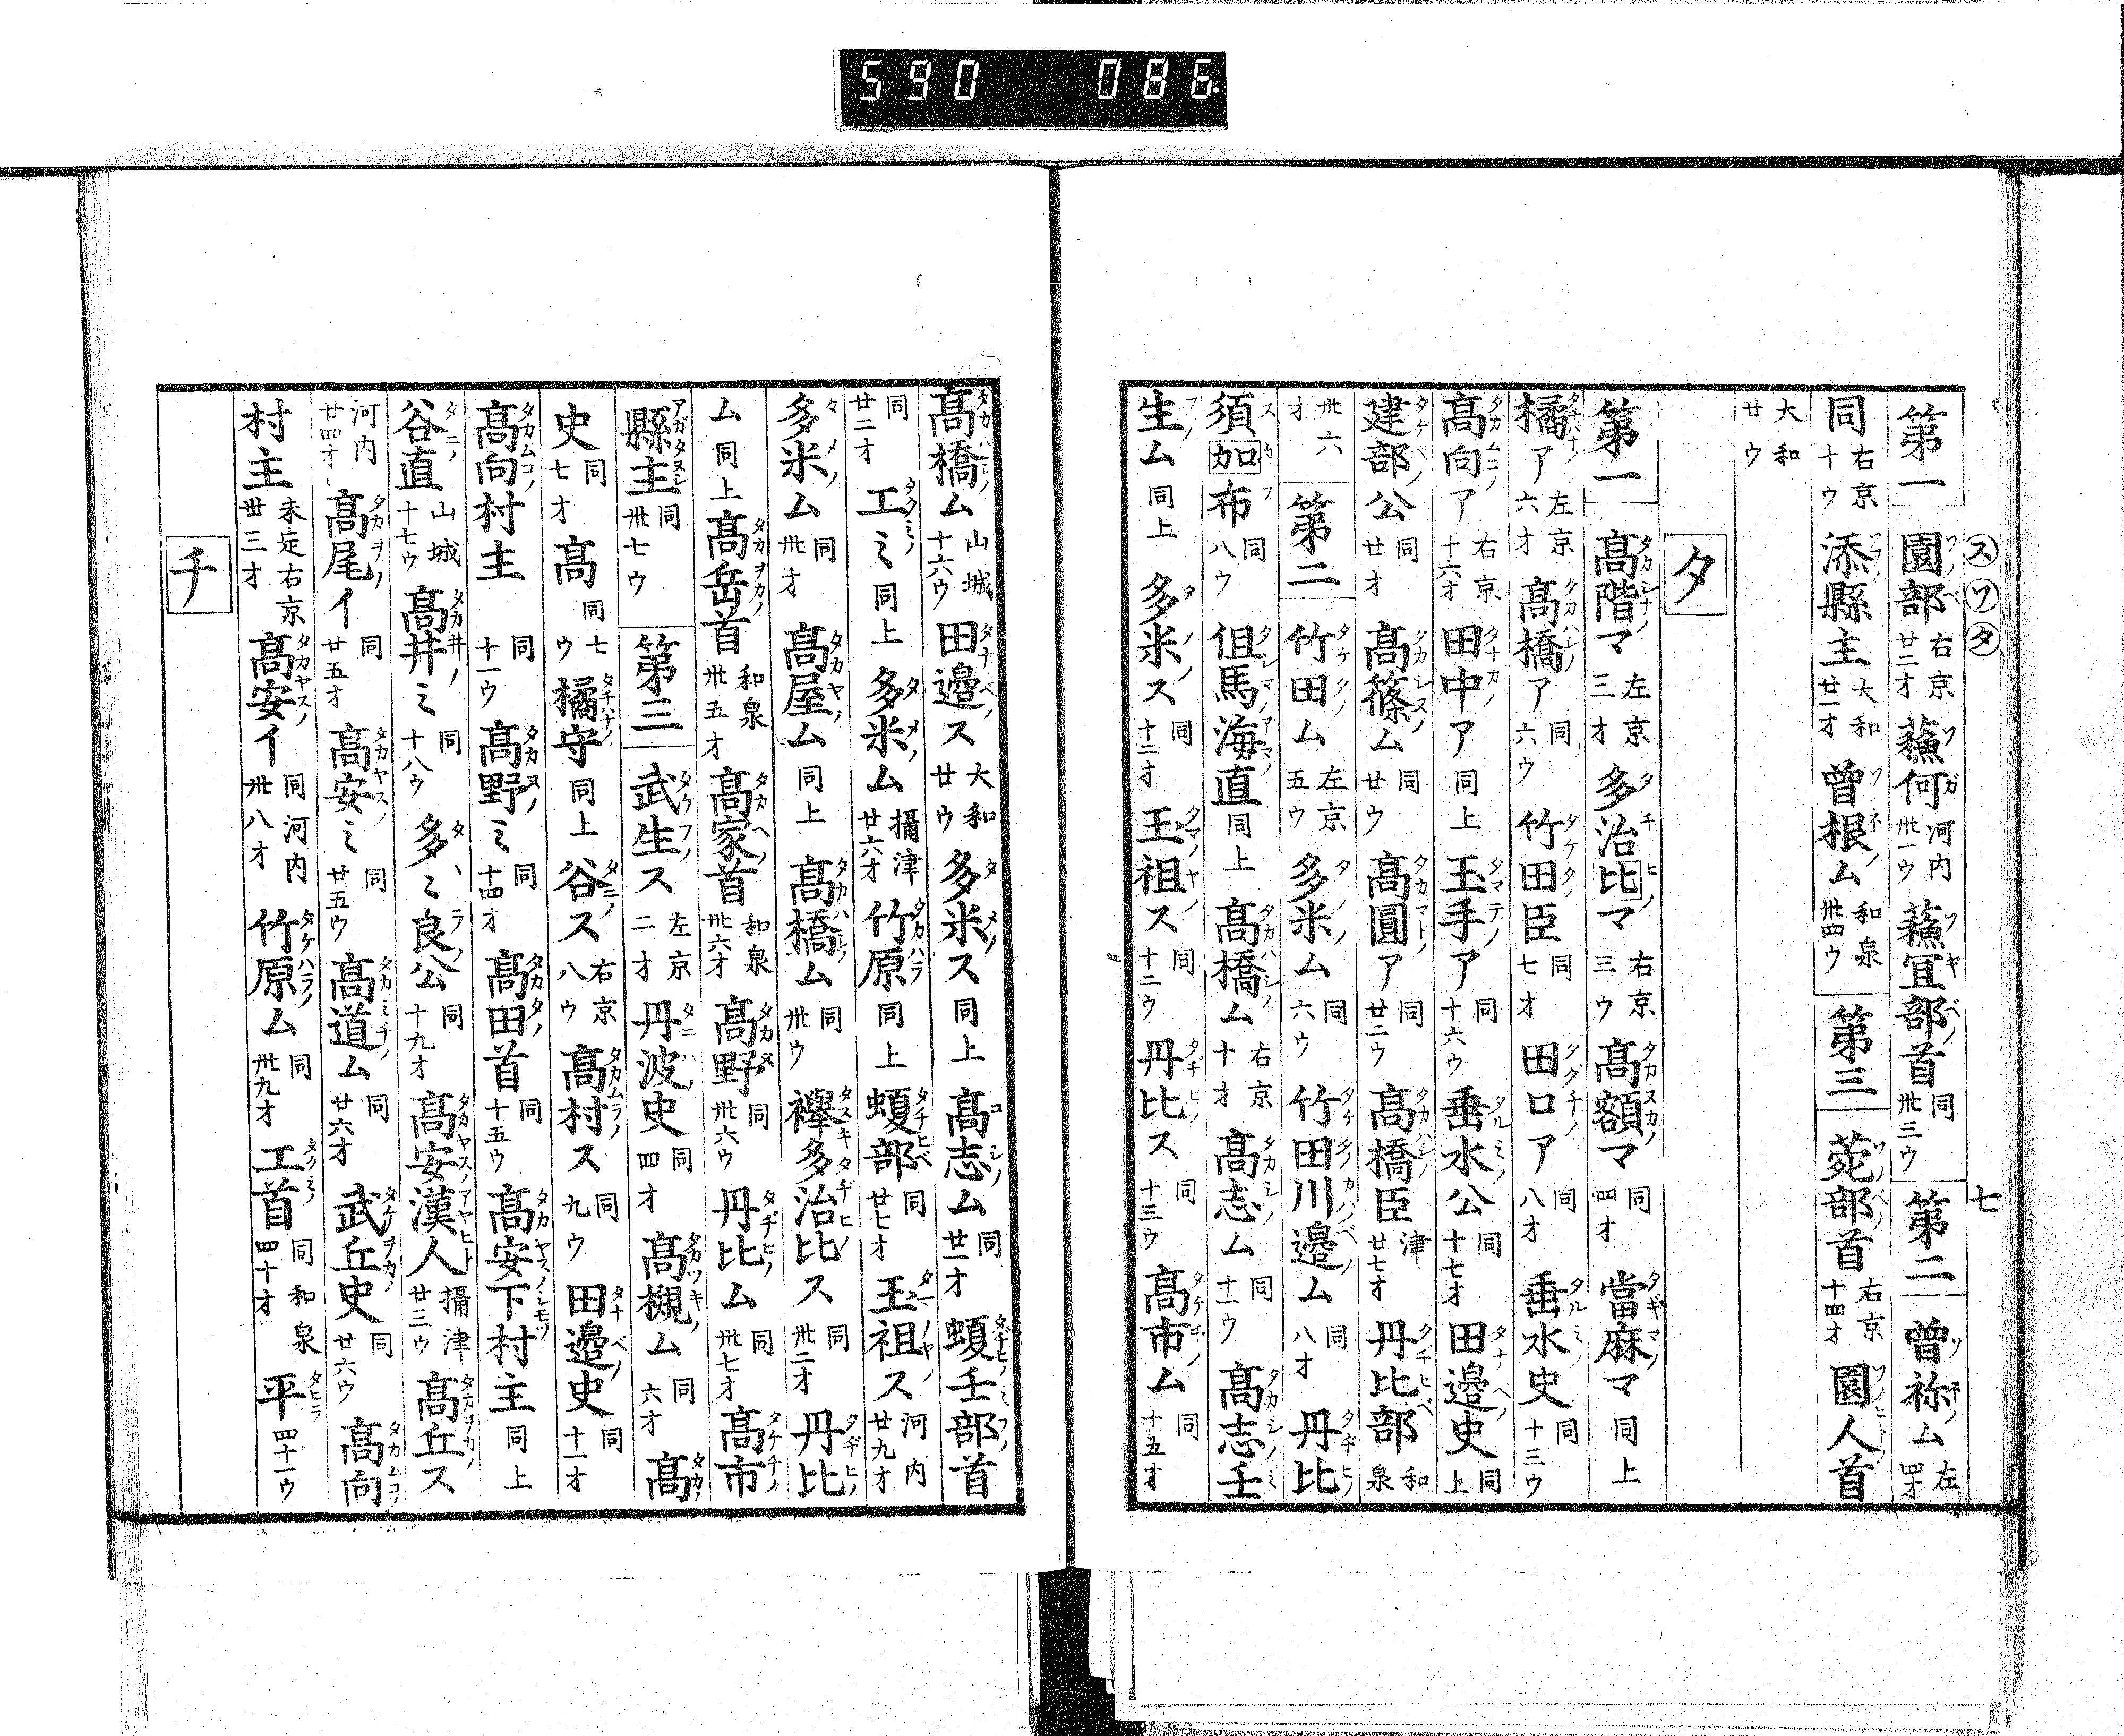 590 086
スソタ 七
第一 園部 右京 廿二オ 蘓何 河内 卅一ウ 蘓冝部首 同 卅三ウ 第二 曽祢ム 左 四オ
同 右京 十ウ 添縣主 大和 廿一オ 曽根ム 和泉 卅四ウ 第三 薗部首 右京 十四オ 園人首
大和 廿ウ
タ
第一 髙階マ 左京 三オ 多治比マ 右京 三ウ 髙額マ 同 四オ 當麻マ 同上
橘ア 左京 六オ 髙橋ア 同 六ウ 竹田臣 同 七オ 田口ア 同 八オ 垂水史 同 十三ウ
髙向ア 右京 十六オ 田中ア 同上 玉手ア 同 十六ウ 垂水公 同 十七オ 田邉史 同上
建部公 同 廿オ 髙篠ム 同 廿ウ 髙圓ア 同 廿二ウ 髙橋臣 津 廿七オ 丹比部 和泉
卅六オ 第二 竹田ム 左京 五ウ 多米ム 同 六ウ 竹田川邉ム 同 八オ 丹比
須加布 同 八ウ 但馬海直 同上 髙橋ム 右京 十オ 髙志ム 同 十一ウ 髙志壬
生ム 同上 多米ス 同 十二オ 玉祖ス 同 十二ウ 丹比ス 同 十三ウ 髙市ム 同 十五オ
髙橋ム 山城 十六ウ 田邉ス 大和 廿ウ 多米ス 同上 髙志ム 同 廿一オ 蝮壬部首
同 廿二オ 工ミ 同上 多米ム 攝津 廿六オ 竹原 同上 蝮部 同 廿七オ 玉祖ス 河内 廿九オ
多米ム 同 卅オ 髙屋ム 同上 髙橋ム 同 卅ウ 襷多治比ス 同 卅二オ 丹比
ム 同上 髙岳首 和泉 卅五オ 髙家首 和泉 卅六オ 髙野 同 卅六ウ 丹比ム 同 卅七オ 髙市
縣主 同 卅七ウ 第三 武生ス 左京 二オ 丹波史 同 四オ 髙槻ム 同 六オ 髙
史 同 七オ 髙 同 七ウ 橘守 同上 谷ス 右京 八ウ 髙村ス 同 九ウ 田邉史 同 十一オ
髙向村主 同 十一ウ 髙野ミ 同 十四オ 髙田首 同 十五ウ 髙安下村主 同上
谷直 山城 十七ウ 髙井ミ 同 十八ウ 多々良公 同 十九オ 髙安漢人 攝津 廿三ウ 髙丘ス
河内 廿四オ 髙尾イ 同 廿五オ 髙安ミ 同 廿五ウ 髙道ム 同 廿六オ 武丘史 同 廿六ウ 髙向
村主 未定右京 卅三オ 髙安イ 同河内 卅八オ 竹原ム 同 卅九オ 工首 同和泉 四十オ 平 四十一ウ
チ